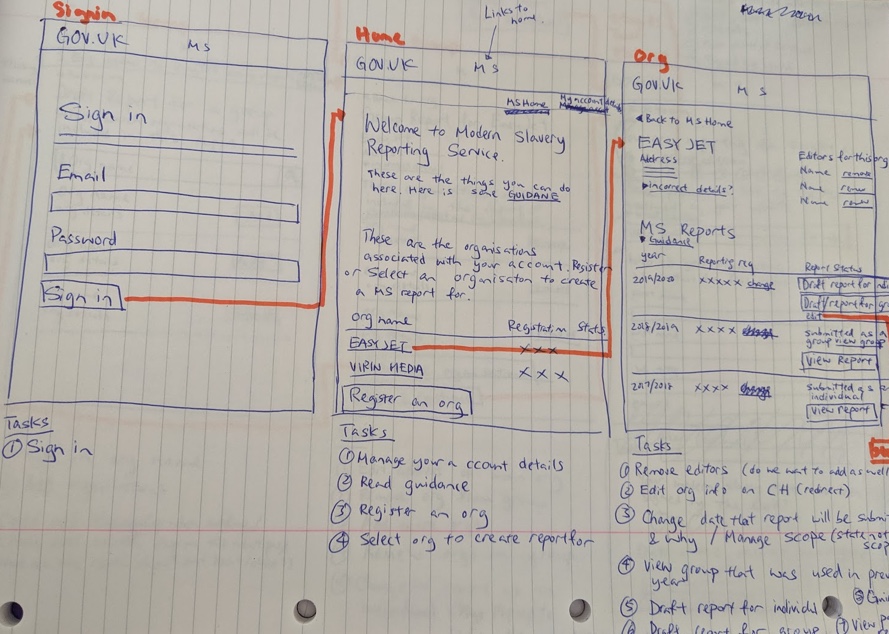 Signin
GOV.UK MS
Sign in
Email
Password
Sign in
Tasks
① Sign in
Links to
home.
Home
GOV.UK MS
MS Home My account
Welcome to Modern Slavery
Reporting Service.
These are the things you can do
here. Here is some GUIDANE
These are the organisations
associated with your account. Register
or Select an organisaton to create
a MS report for.
Org name Registration Status
EASYJET xxx
VIRIN MEDIA xxx
Register an org
Tasks
① Manage your account details
② Read guidance
③ Register an org
④ Select org to create report for
Org
GOV.UK MS
◀ Back to MS Home
EASYJET
Address
▶ incorrect details?
Editors for this org
Name remove
Name remov
Name remov
MS Reports
Guidance
year Reporting req Report Status
2019/2020 xxxxx change Draft report for indi
Draft report for g
edit
2018/2019 xxxx change submitted as a
group view group
View Report
2017/2018 xxxx change submitted as
individual
View report
Tasks
① Remove editors (do we want to add as well
② Edit org info on CH (redirect)
③ Change date that report will be submi
& why / Manage scope (state not
scop
④ View group that was used in prev
year
⑤ Draft report for individul
⑥ Draft report for group
⑦ View
⑧ Gui